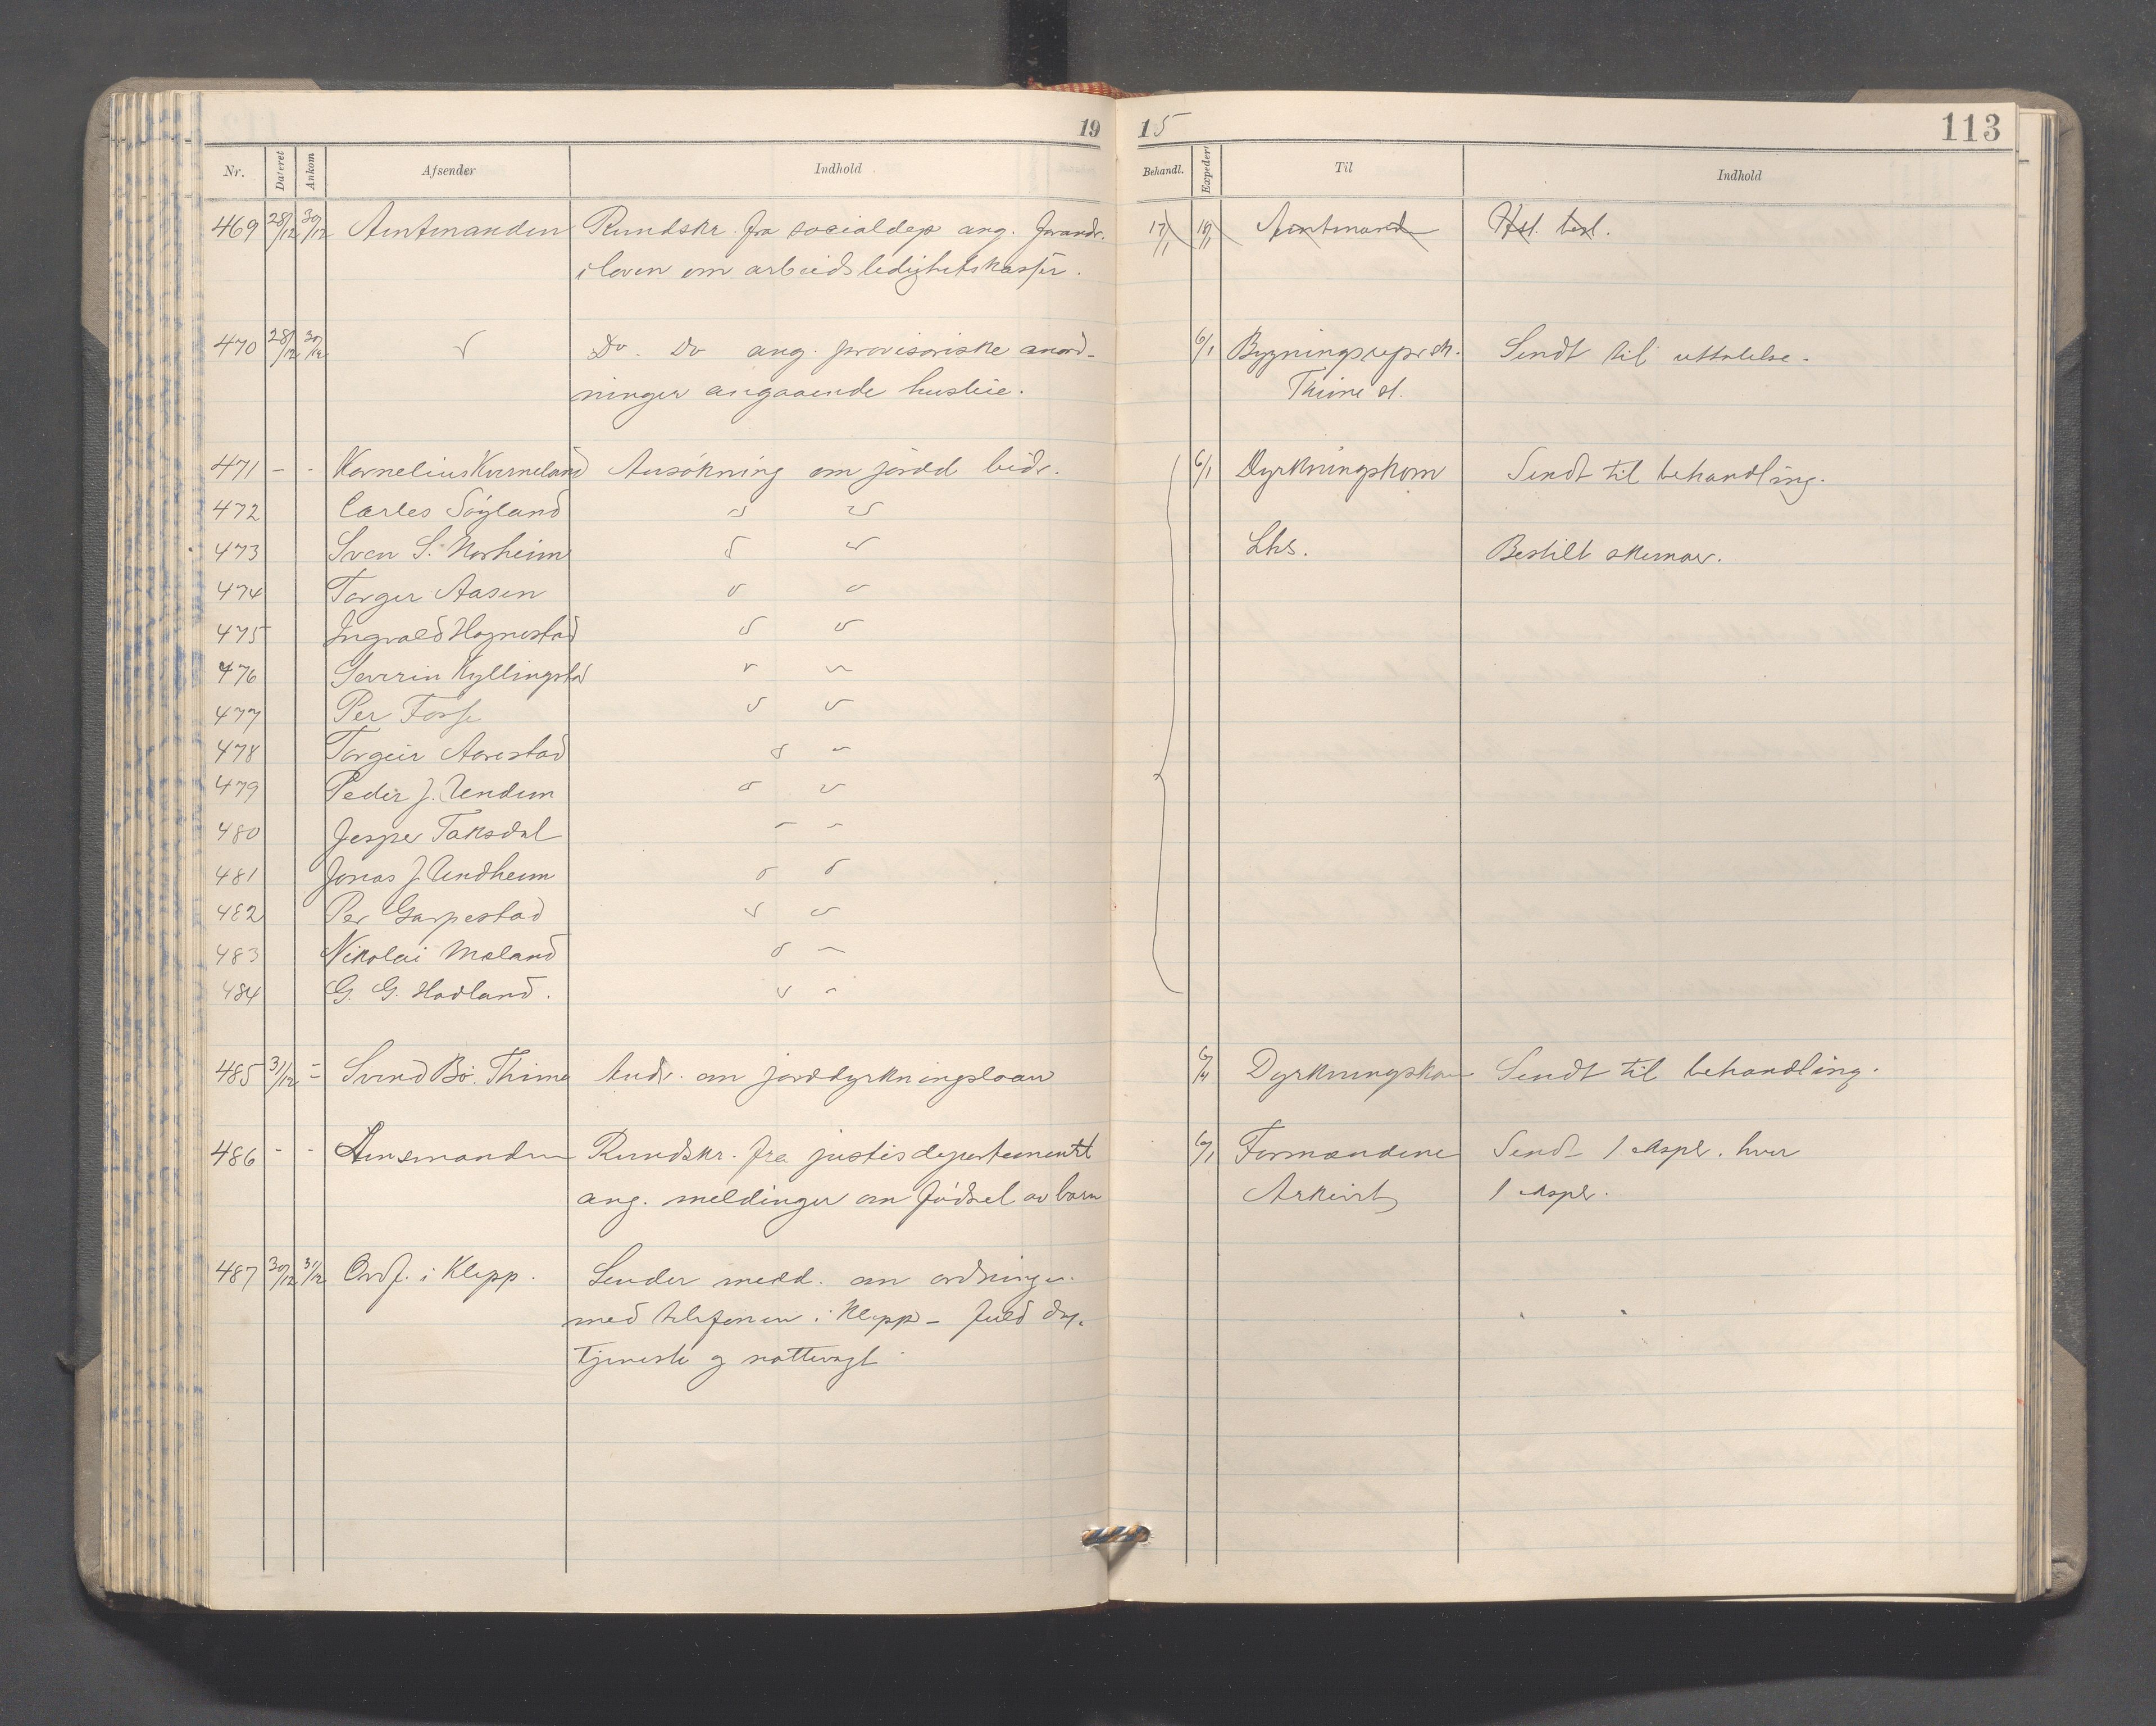 19 15 113
Nr. Dateret Ankom Afsender Indhold Behandl. Expedert Til Indhold
469 28/12 30/12 Amtmanden Rundskr. fra socialdep ang. forandr. 17/1 18/1 Amtmand Hsl. besl.
i loven om arbeidsledighetskasser.
470 28/12 30/12 " Do. Do ang. provisoriske anord- 6/1 Bygningsrepr. sk. Sendt til uttalelse.
ninger angaaende husleie. Thime st.
471 - - Kornelius Kverneland Ansøkning om jordd bidr. 6/1 Dyrkningskom Sendt til behandling.
472 Carles Söyland " "
473 Sven S. Norheim " " Lhs. Bestilt skemaer.
474 Torger Aasen " "
475 Ingvald Hognestad " "
476 Severin Kyllingstad " "
477 Per Fosse " "
478 Torgeir Aarestad " "
479 Peder J. Undem " "
480 Jesper Taksdal " "
481 Jonas J. Undheim " "
482 Per Garpestad " "
483 Nikolai Mæland " "
484 G. G. Hadland. " "
485 31/12 - Svend Bö. Thime Andr. om jorddyrkningslaan 6/1 Dyrkningskom Sendt til behandling.
486 - - Amtmanden Rundskr. fra justisdepartementet 6/1 Formændene Sendt 1 expl. hver
ang. meldinger om födsel av barn Arkivet 1 expl.
487 30/12 31/12 Ordf. i Klepp. Sender medd. om ordningen
med telefonen i Klepp - fuld dag-
tjeneste og nattevagt